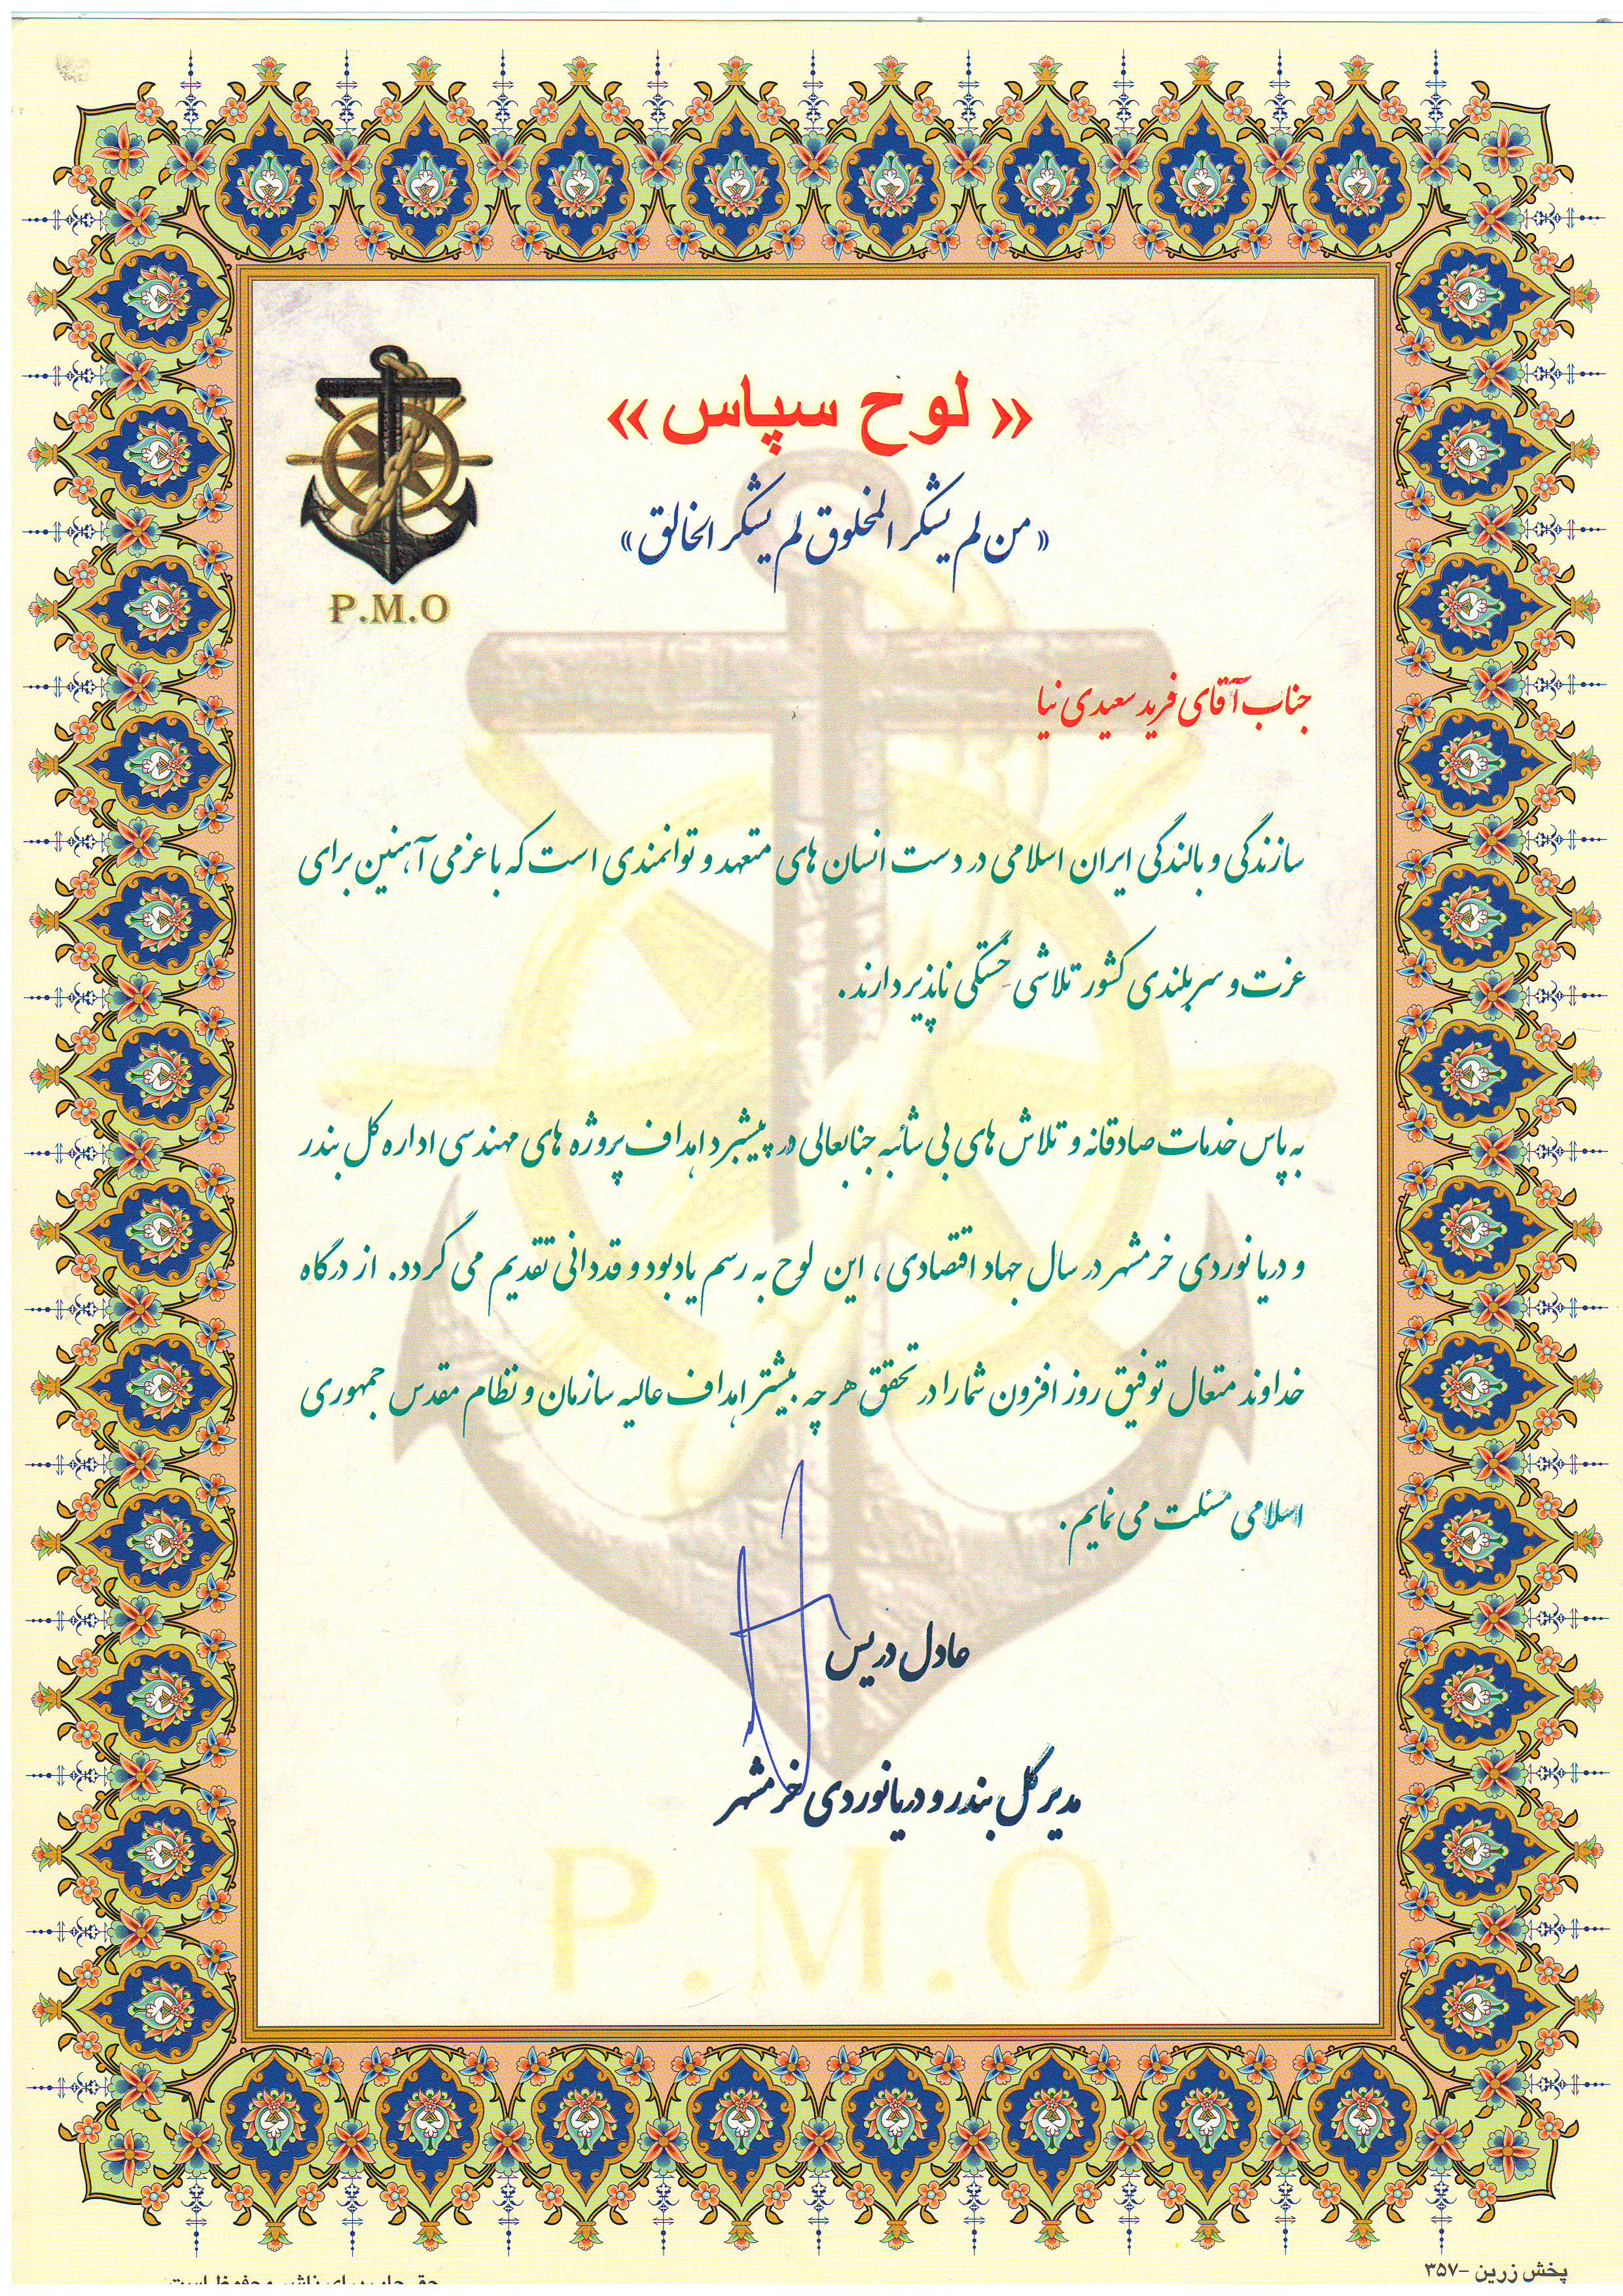 « لوح سپاس »
« من لم یشکر المخلوق لم یشکر الخالق »
P.M.O
جناب آقای فرید سعیدی نیا
سازندگی و بالندگی ایران اسلامی در دست انسان های متعهد و توانمندی است که با عزمی آهنین برای
عزت و سربلندی کشور تلاشی خستگی ناپذیر دارند.
به پاس خدمات صادقانه و تلاش های بی شائبه جنابعالی در پیشبرد اهداف پروژه های مهندسی اداره کل بندر
و دریانوردی خرمشهر در سال جهاد اقتصادی، این لوح به رسم یادبود و قدردانی تقدیم می گردد. از درگاه
خداوند متعال توفیق روز افزون شما را در تحقق هر چه بیشتر اهداف عالیه سازمان و نظام مقدس جمهوری
اسلامی مسئلت می نمایم.
عادل دریس
مدیر کل بندر و دریانوردی خرمشهر
P.M.O
پخش زرین -۳۵۷
حق چاپ برای ناشر محفوظ است